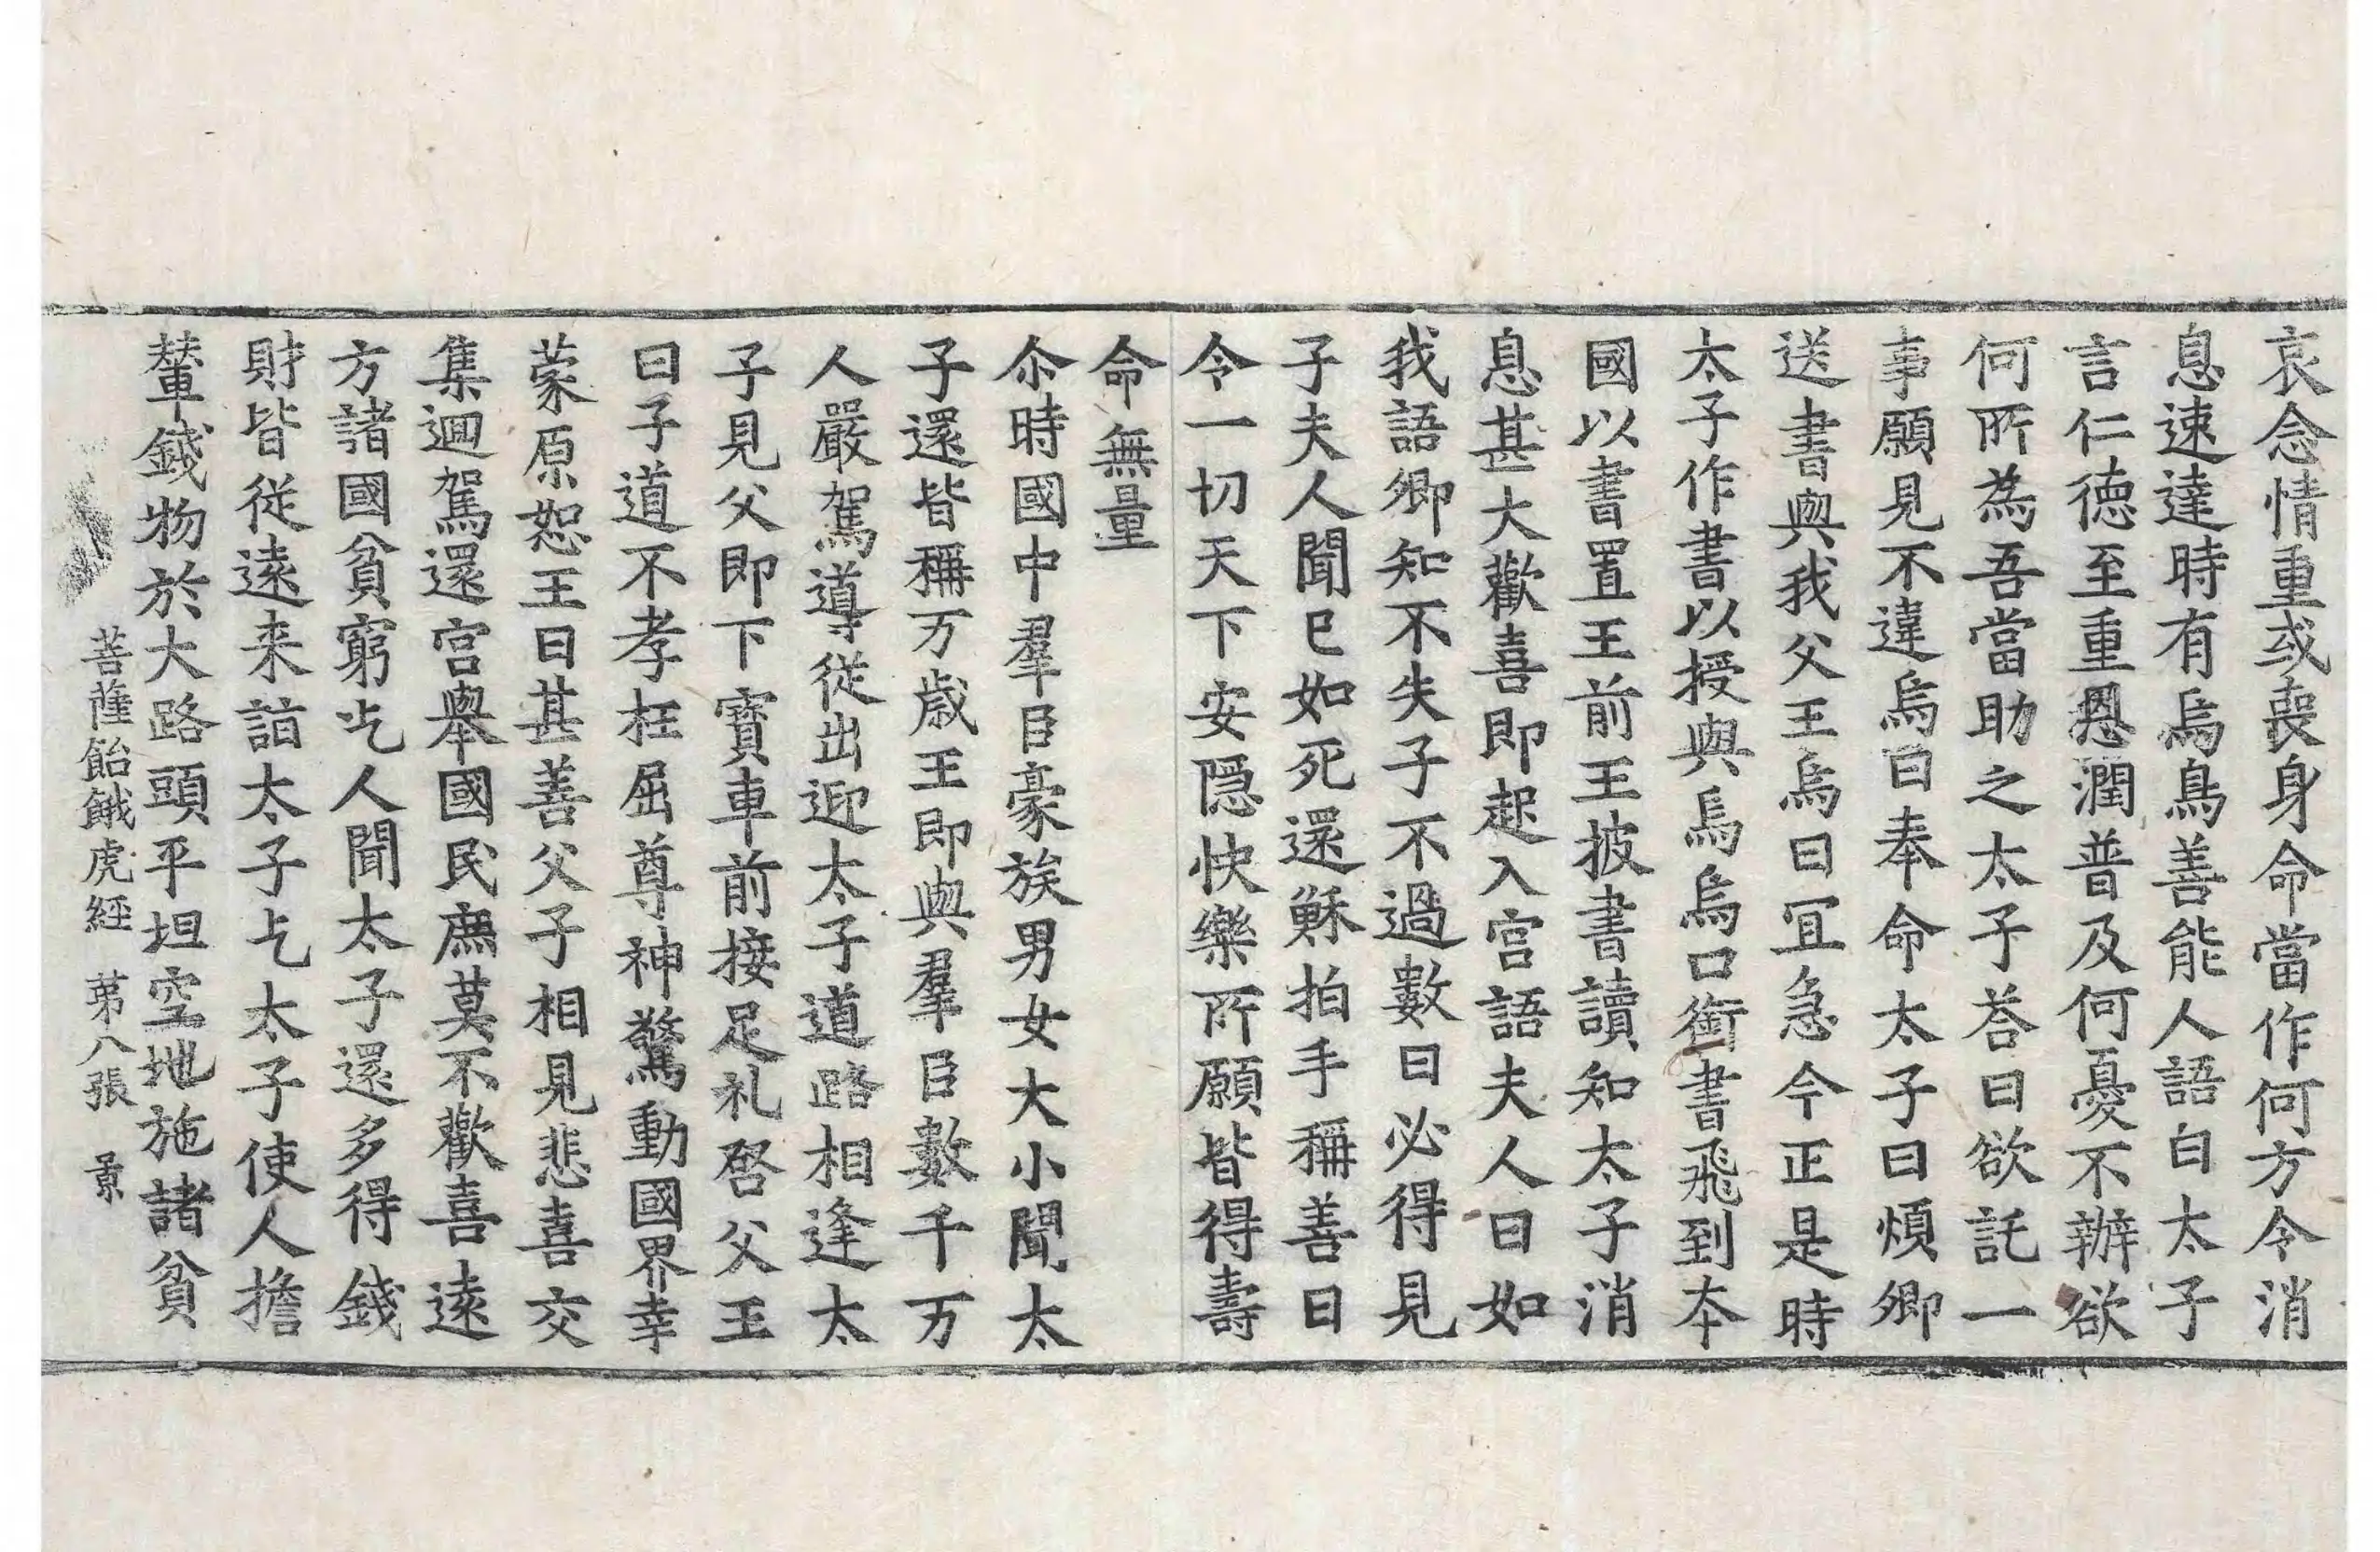 哀念情重或喪身命當作何方令消
息速達時有烏鳥善能人語白太子
言仁德至重恩潤普及何憂不辦欲
何所為吾當助之太子荅曰欲託一
事願見不違烏曰奉命太子曰煩卿
送書與我父王烏曰冝急今正是時
太子作書以授與烏烏口銜書飛到本
國以書置王前王披書讀知太子消
息甚大歡喜即起入宮語夫人曰如
我語卿知不失子不過數日必得見
子夫人聞已如死還穌拍手稱善曰
令一切天下安隱快樂所願皆得壽
命無量
尒時國中羣臣豪族男女大小聞太
子還皆稱万歳王即與羣臣數千万
人嚴駕導從出迎太子道路相逢太
子見父即下寶車前接足礼啓父王
曰子道不孝枉屈尊神驚動國界幸
蒙原恕王曰甚善父子相見悲喜交
集迴駕還宮舉國民庶莫不歡喜遠
方諸國貧窮乞人聞太子還多得錢
財皆從遠来詣太子乞太子使人擔
輦錢物於大路頭平坦空地施諸貧
菩薩飴餓虎經 苐八張 景